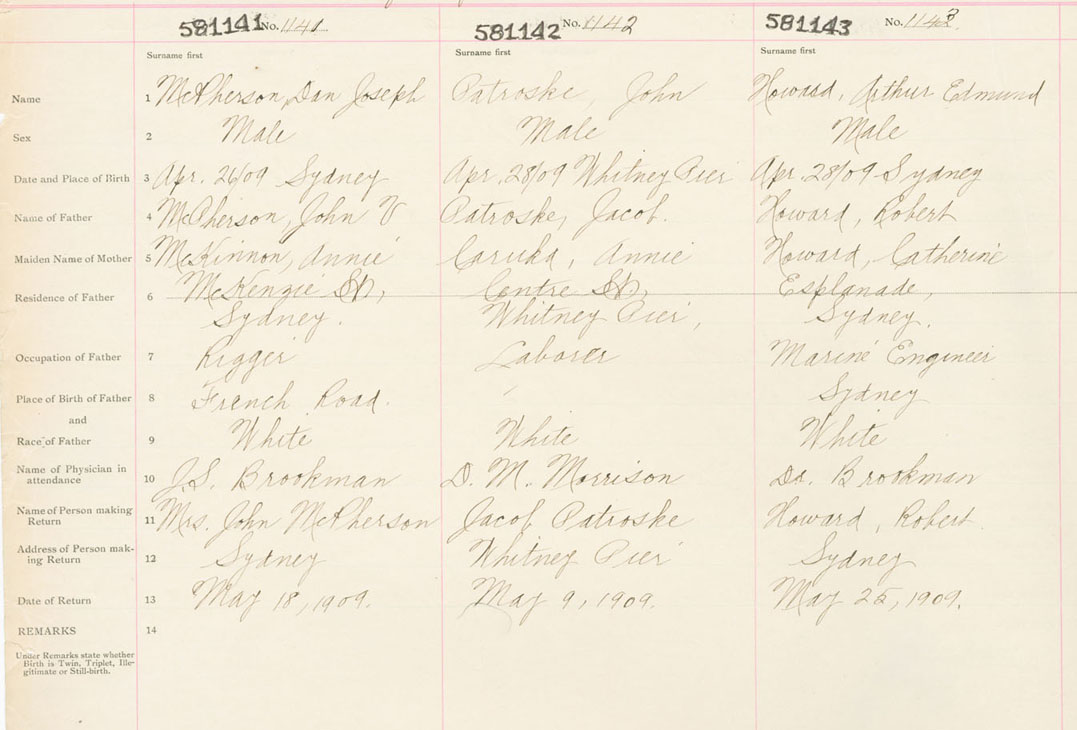 581141 No. 1141 581142 No. 1142 581143 No. 1143
Surname first Surname first Surname first
Name 1 McPherson, Dan Joseph Patroske, John Howard, Arthur Edmund
Sex 2 Male Male Male
Date and Place of Birth 3 Apr. 26/09 Sydney Apr. 28/09 Whitney Pier Apr. 28/09 Sydney
Name of Father 4 McPherson, John V Patroske, Jacob. Howard, Robert
Maiden Name of Mother 5 McKinnon, Annie Caruka, Annie Howard, Catherine
Residence of Father 6 McKenzie St, Centre St, Esplanade,
Sydney. Whitney Pier, Sydney.
Occupation of Father 7 Rigger Laborer Marine Engineer
Place of Birth of Father 8 French Road. Sydney
and
Race of Father 9 White White White
Name of Physician in
attendance 10 J.S. Brookman D. M. Morrison Dr. Brookman
Name of Person making
Return 11 Mrs. John McPherson Jacob Patroske Howard, Robert
Address of Person mak-
ing Return 12 Sydney Whitney Pier Sydney
Date of Return 13 May 18, 1909. May 9, 1909. May 25, 1909.
REMARKS 14
Under Remarks state whether
Birth is Twin, Triplet, Ille-
gitimate or Still-birth.